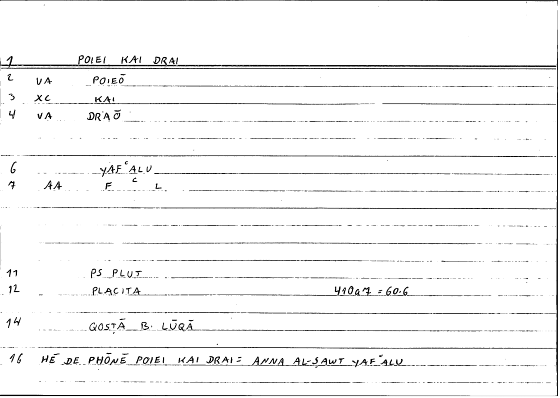 1 POIEI KAI DRAI
2 VA POIEŌ
3 XC KAI
4 VA DRAŌ
6 YAFʿALU
7 AA F ʿ L
11 PS PLUT
12 PLACITA 410a7 = 60.6
14 QOSṬĀ B. LŪQĀ
16 HĒ DE PHŌNĒ POIEI KAI DRAI = ANNA AL-ṢAWT YAFʿALU